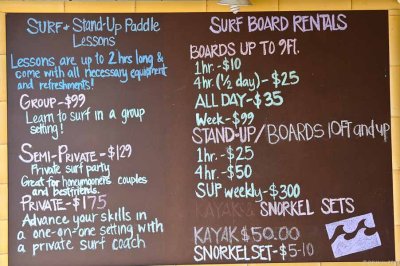 SURF + Stand-Up Paddle
Lessons
Lessons are up to 2 hrs long &
come with all necessary equipment
and refreshments!
GROUP-$99
Learn to surf in a group
setting!
SEMI-PRIVATE-$129
Private surf party
Great for honeymooners couples
and bestfriends.
PRIVATE-$175
Advance your skills in
a one-on-one setting with
a private surf coach
SURF BOARD RENTALS
BOARDS UP TO 9FT.
1hr.-$10
4hr.(1/2 day)-$25
ALL DAY-$35
Week-$99
STAND-UP/BOARDS 10FT and up
1hr.-$25
4hr.-$50
SUP weekly-$300
KAYAK & SNORKEL SETS
KAYAK $50.00
SNORKELSET-$5-10